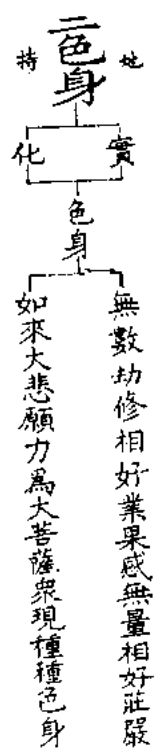 二色身
地持
實
化
色身
無數劫修相好業果感無量相好莊嚴
如來大悲願力為大菩薩衆現種種色身